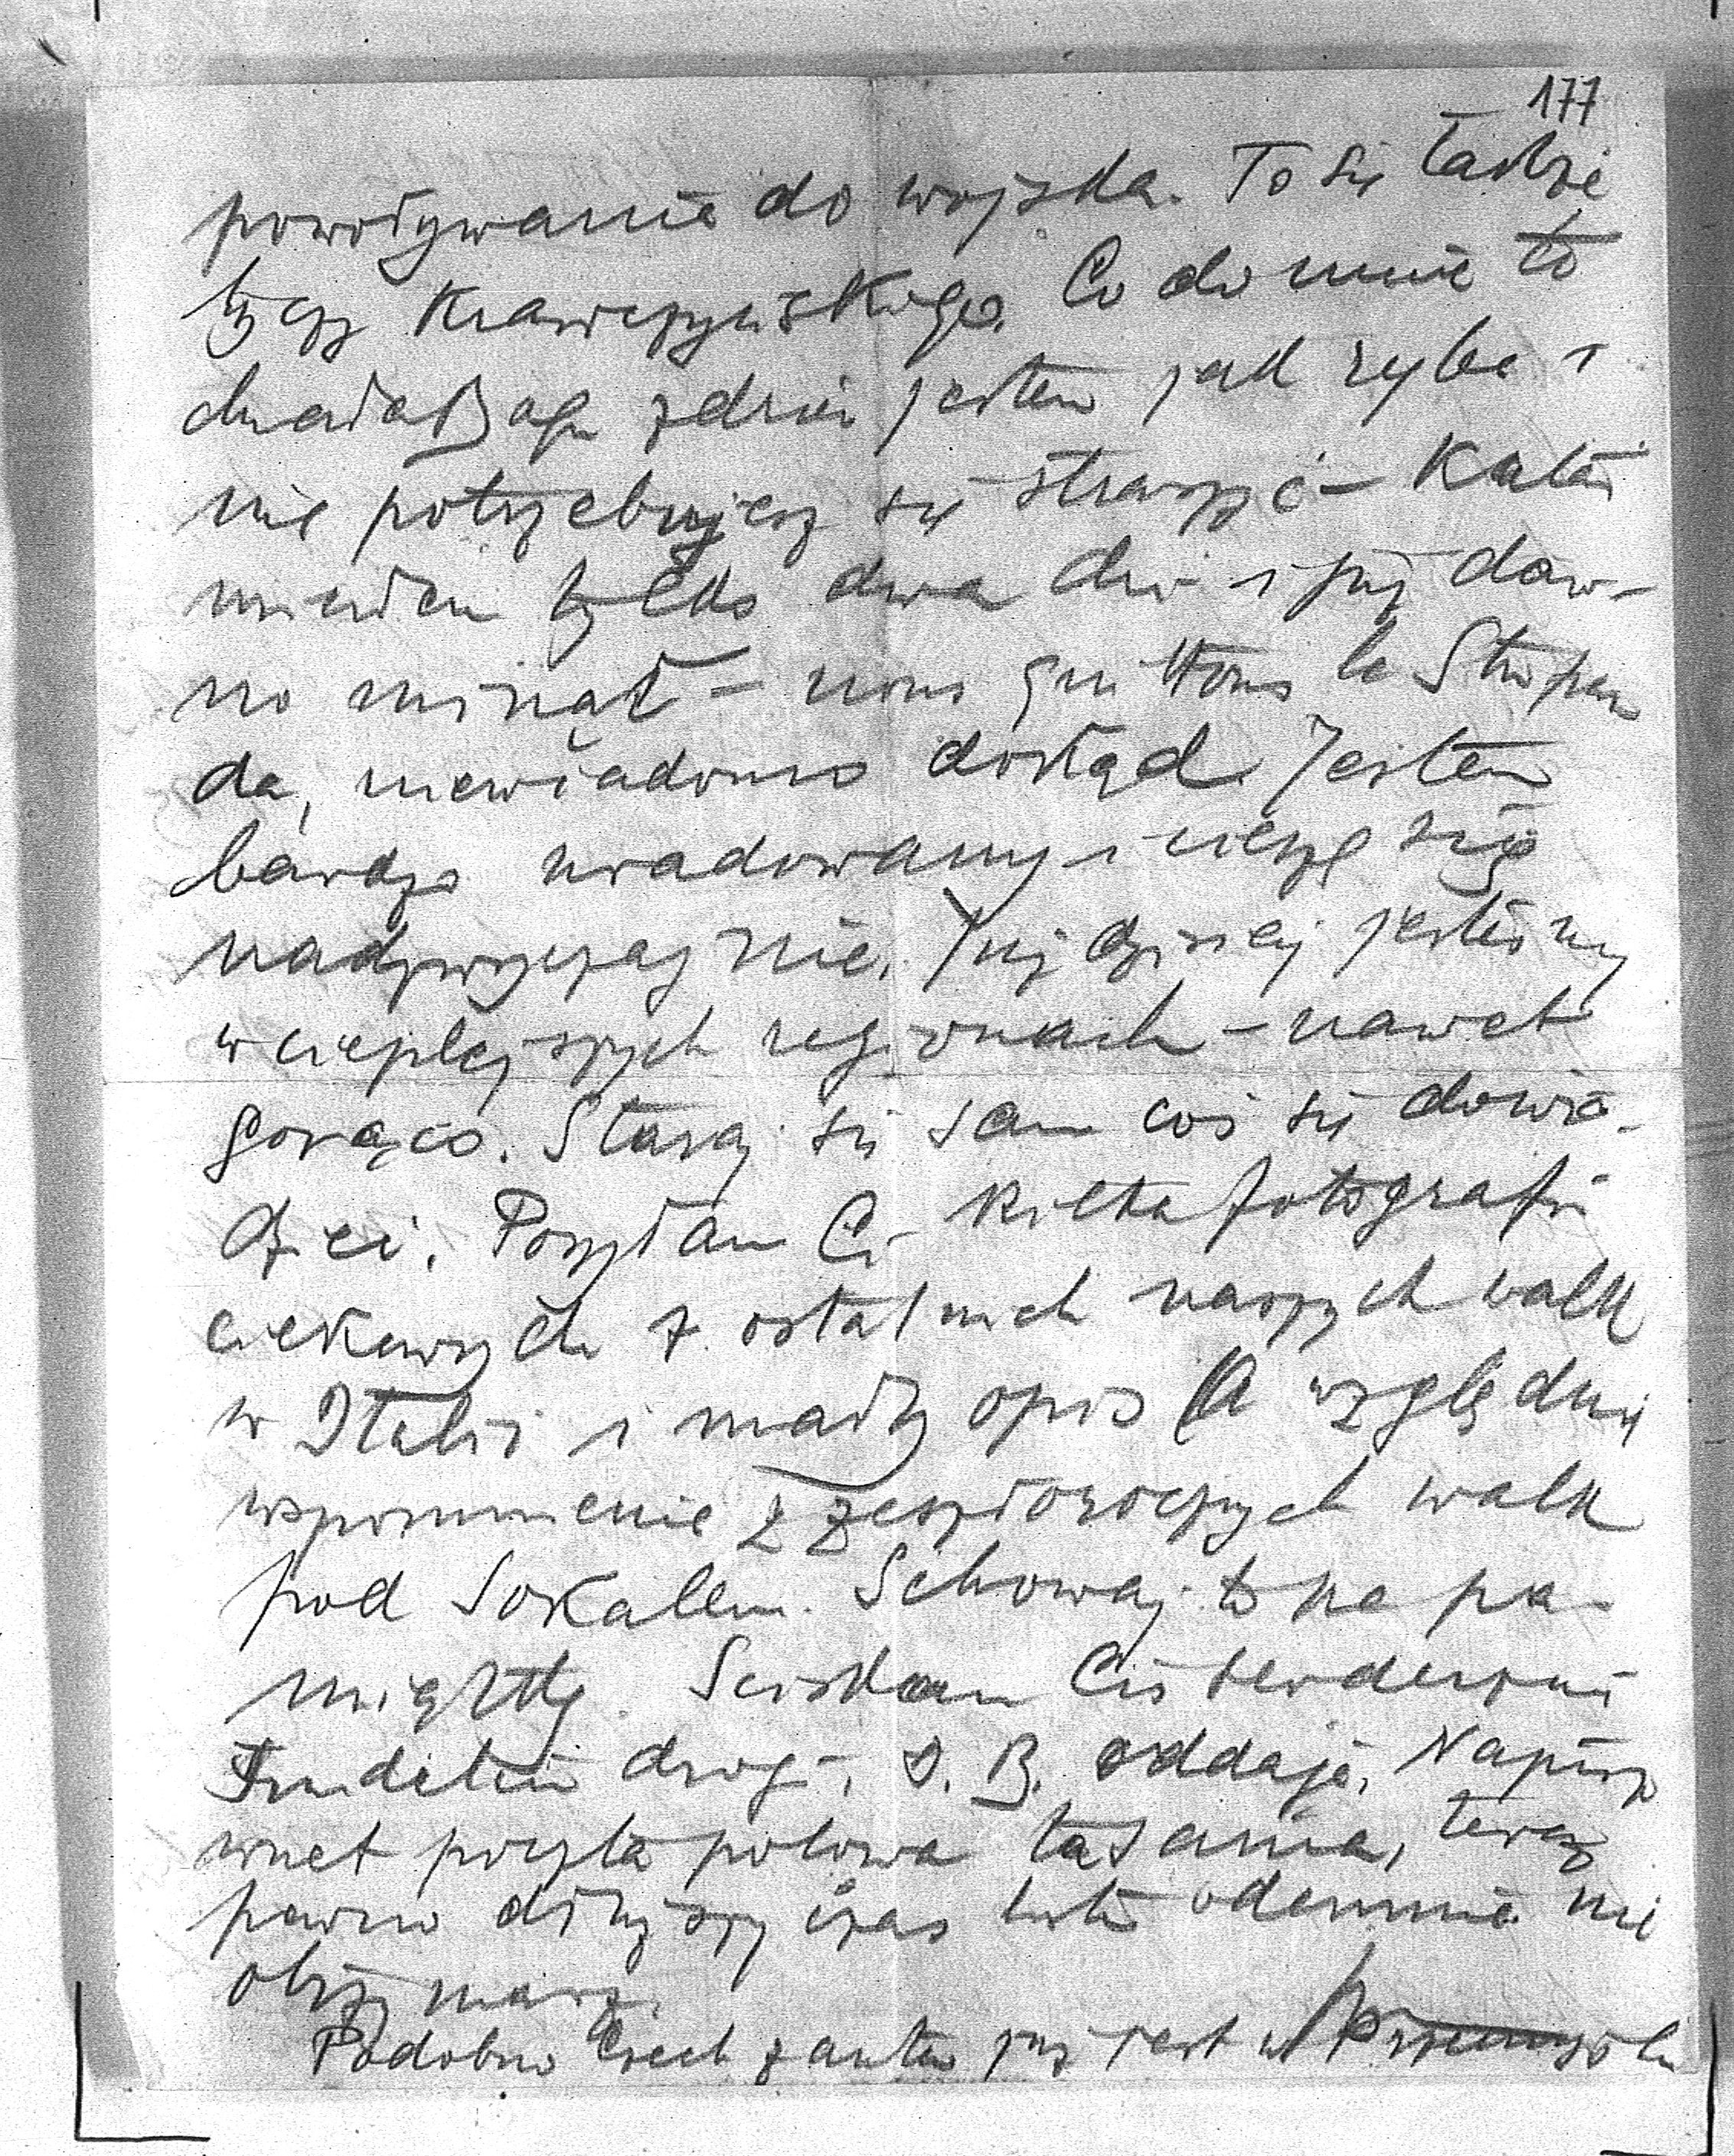 177
powoływania do wojska. To się także
tyczy Krawczyńskiego. Co do mnie to
chwała Bogu zdrów jestem jak ryba i
nie potrzebujesz się straszyć – Katar
miałem tylko dwa dni i już daw-
no minął – nous quittons le Stupen
da, niewiadomo dokąd. Jestem
bardzo uradowany i cieszę się
nadzwyczajnie. Już dzisiaj jesteśmy
w cieplejszych regionach – nawet
gorąco. Staraj się sam coś się dowie-
dzieć. Posyłam Ci kilka fotografii
ciekawych z ostatnich naszych walk
w Italii i mały opis (a względnie
wspomnienie z zeszłorocznych walk
pod Sokalem. Schowaj to na pa-
miątkę. Ściskam Cię serdecznie
drogi, S. B. oddaję. Napisz
wnet poczta polowa ta sama, teraz
pewno dłuższy czas listu odemnie nie
otrzymasz.
Podobno Czech zantem już jest w Przemyślu